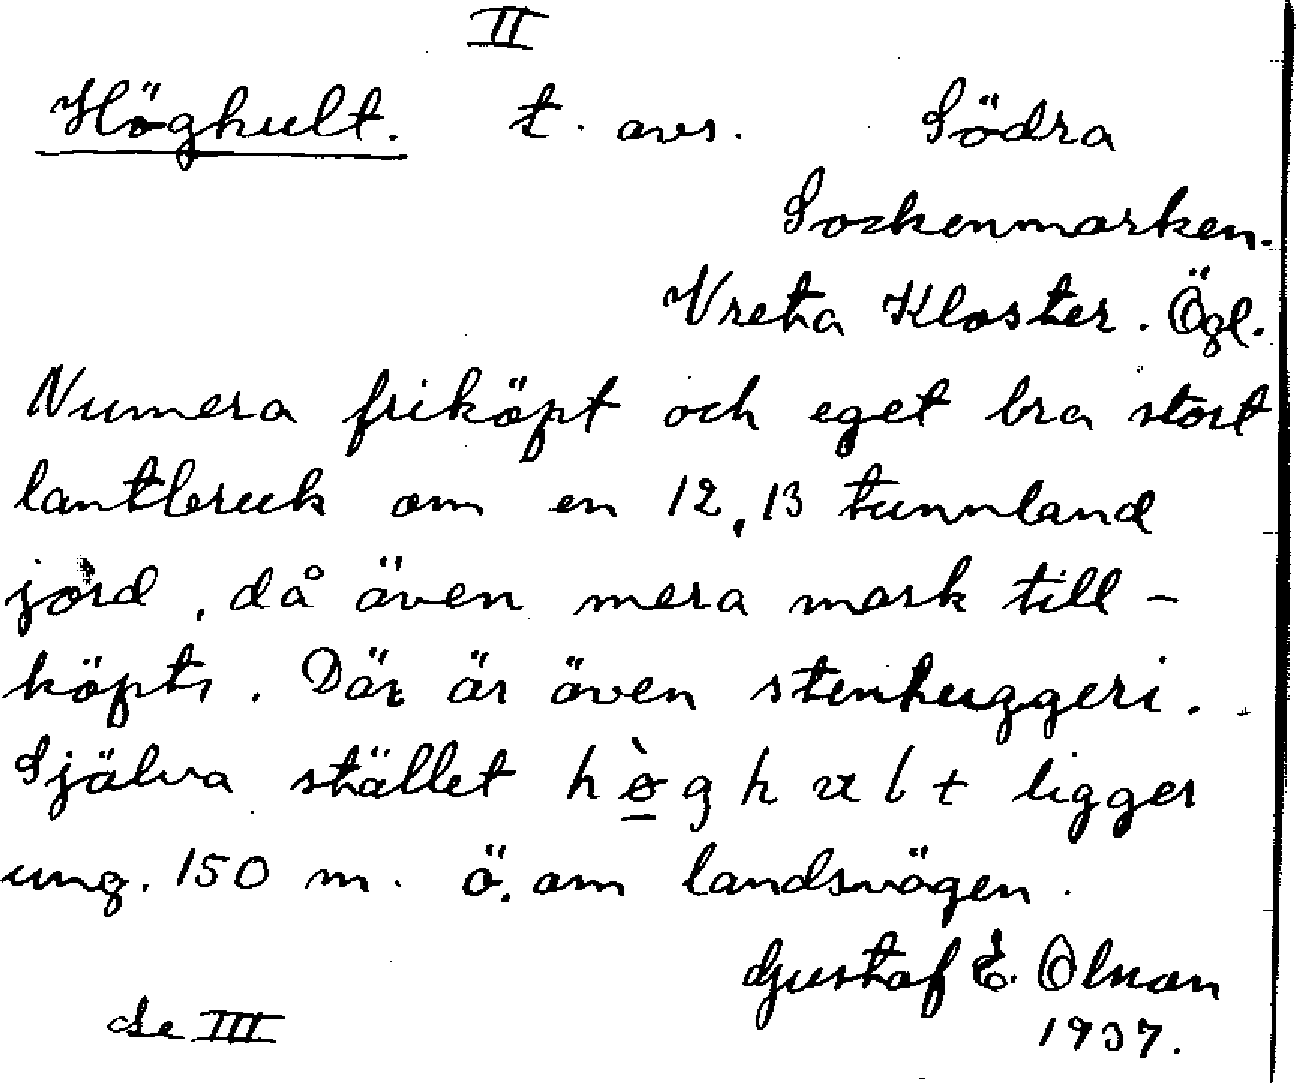 II
Höghult. t. avs. Södra
Sockenmarken.
Vreta Kloster. Ögl.
Numera friköpt och eget bra stort
lantbruk om en 12, 13 tunnland
jord, då även mera mark till-
köpts. Där är även stenhuggeri.
Själva stället h ò g h u l t ligger
ung. 150 m. ö. om landsvägen.
Gustaf E. Olnan
1937.
Se III